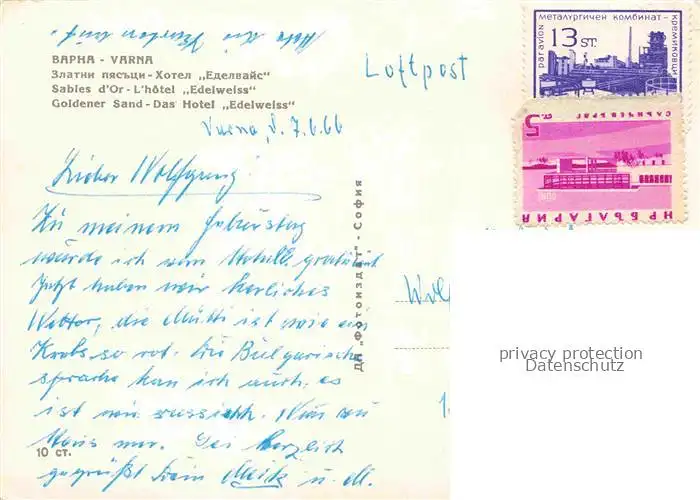 ВАРНА - VARNA
Златни пясъци - Хотел „Еделвайс“
Sables d'Or - L'hôtel „Edelweiss“
Goldener Sand - Das Hotel „Edelweiss“
Luftpost
par avion
МЕТАЛУРГИЧЕН КОМБИНАТ - КРЕМИКОВЦИ
13 ST.
5 СТ.
СЛЪНЧЕВ БРЯГ
НР БЪЛГАРИЯ
Varna, d. 7.6.66
Lieber Wolfgang!
Zu meinem Geburtstag
wurde ich vom Hotel gratuliert
Jetzt haben wir herliches
Wetter, die Mutti ist wie ein
Krebs so rot. Die Bulgarische
sprache kan ich auch. es
ist wie russisch. Nun zu
Sei herzlich
gegrüßt Dein u. M.
10 ст.
ДП „Фотоиздат“ · София
privacy protection
Datenschutz